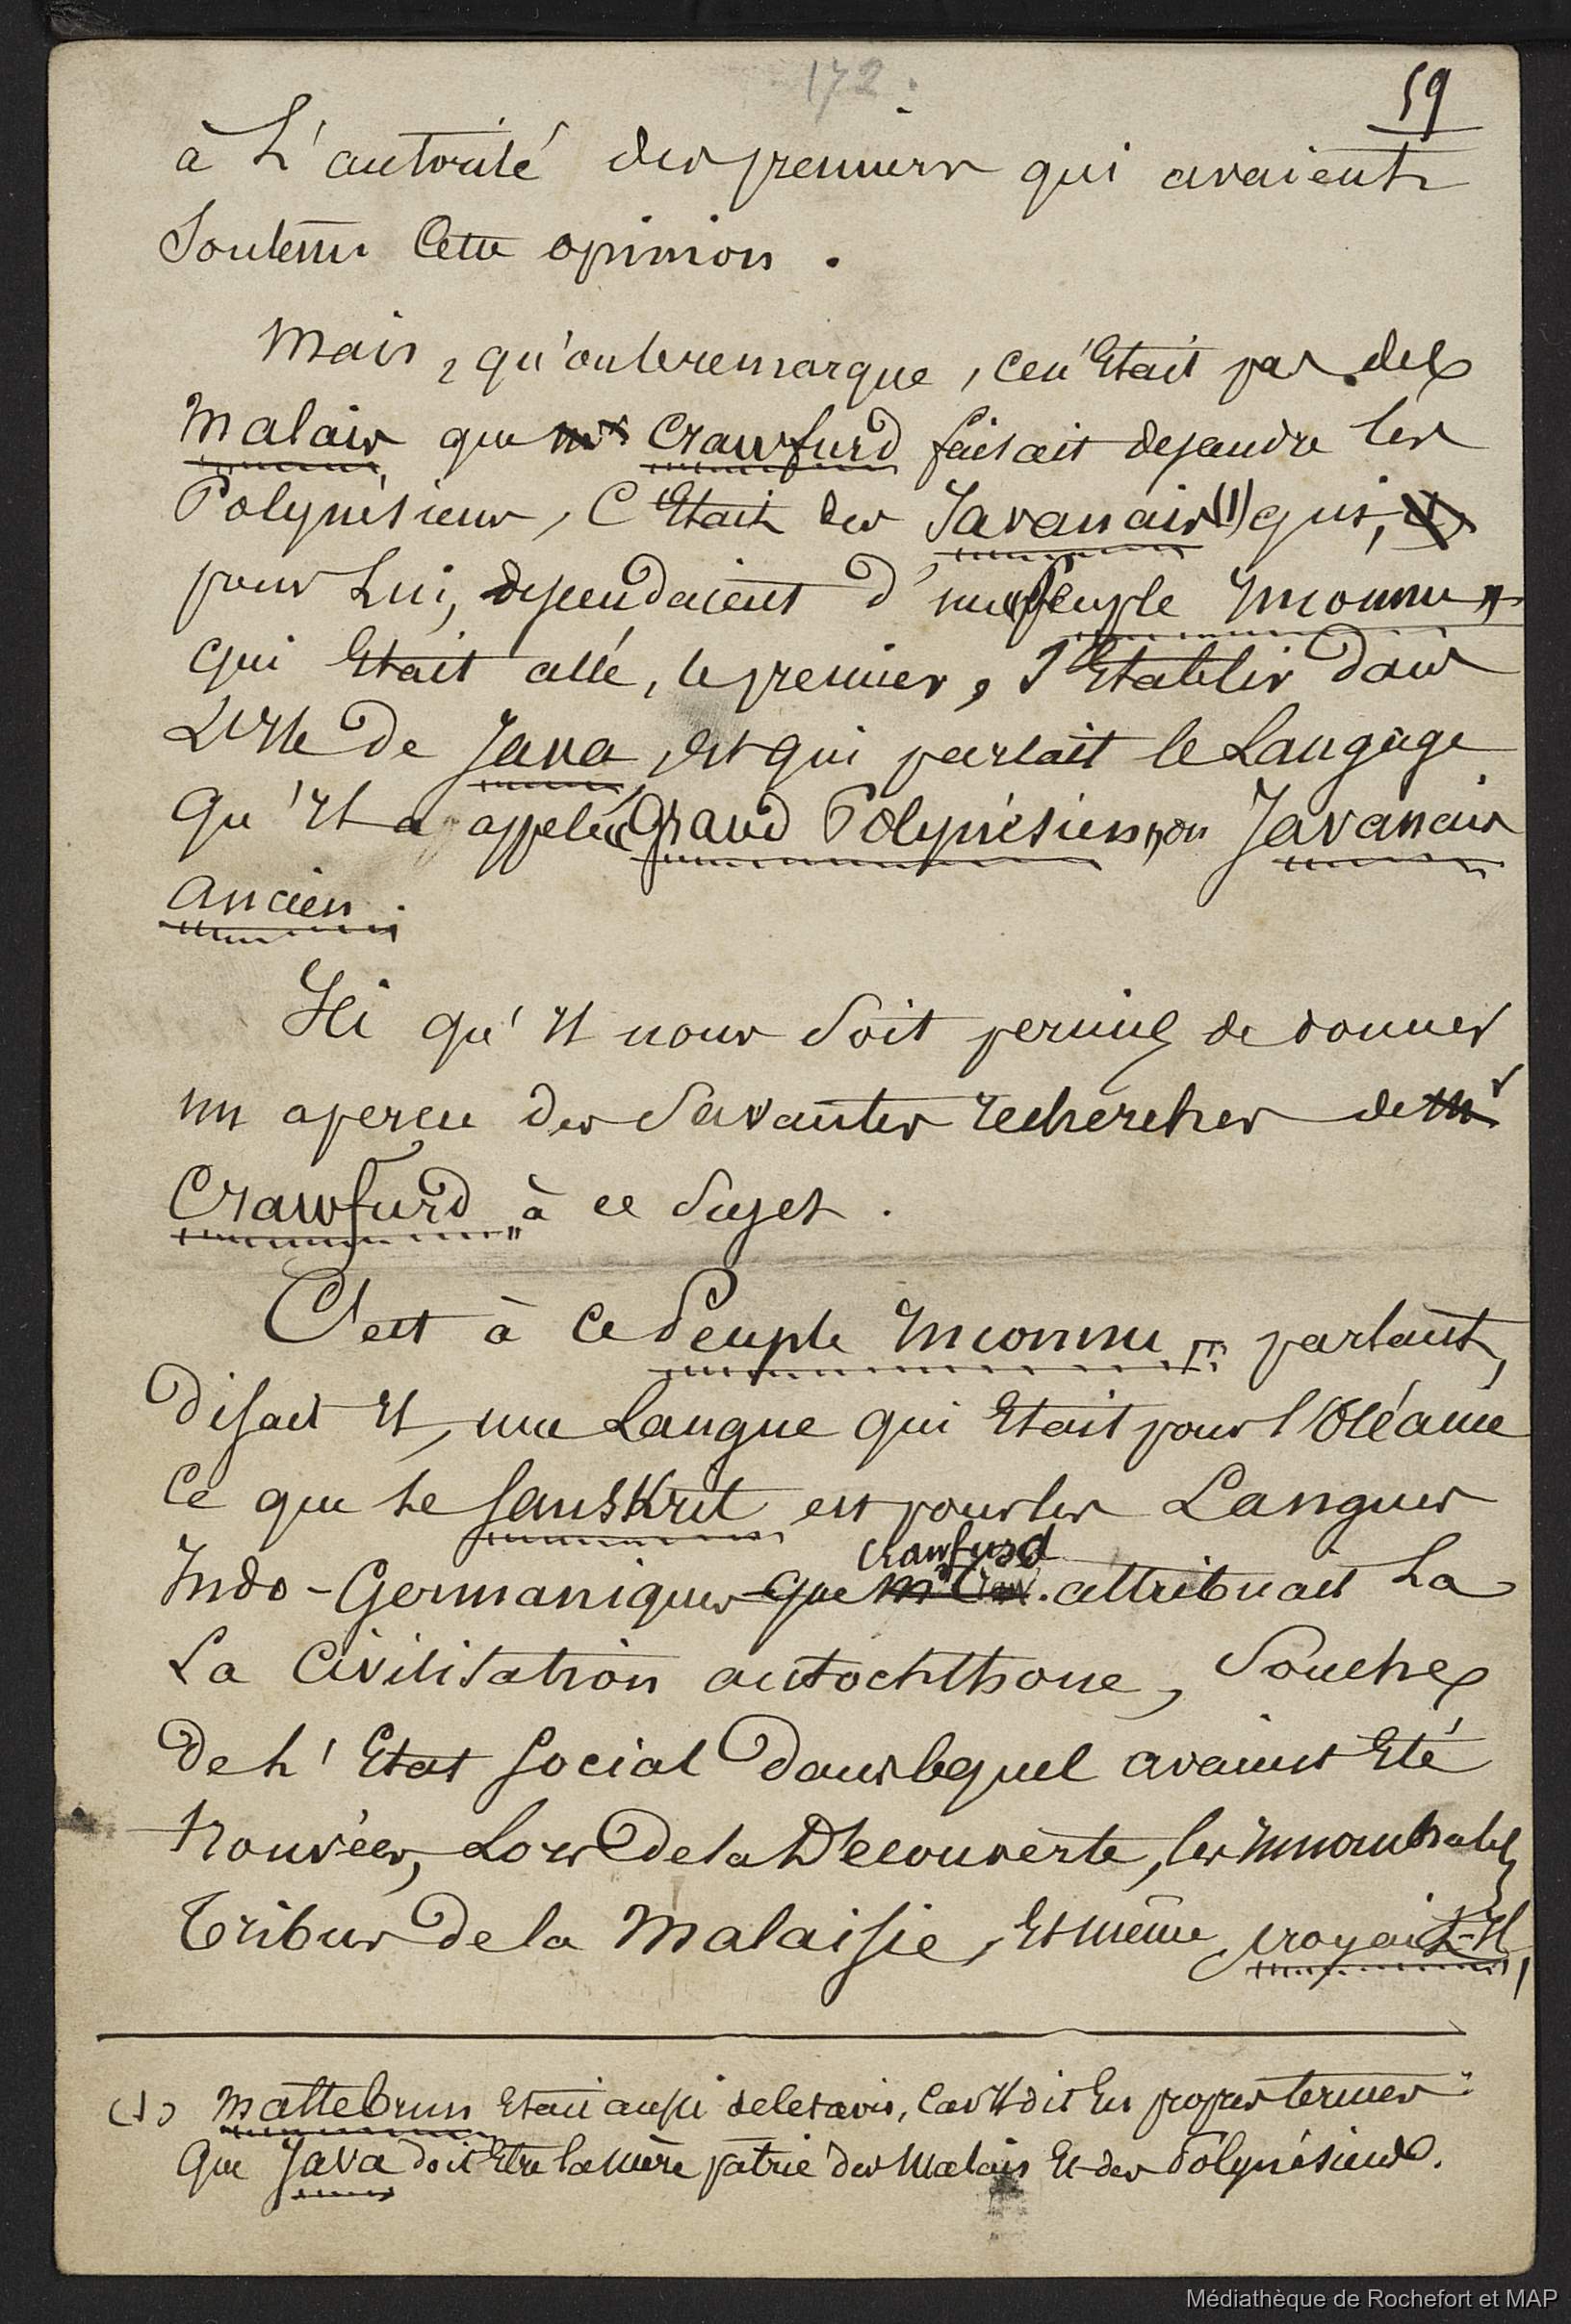 172.
59
à L'autorité des premiers qui avaient
Soutenu Cette opinion.
Mais, qu'on le remarque, ce n'Etait pas des
Malais que Mr Crawfurd faisait descendre les
Polynésiens, C'Etait des Javanais (1) qui,
pour Lui, descendaient d'un "Peuple Inconnu"
qui Etait allé, le premier, S'Etablir dans
L'Ile de Java, Et qui parlait le Langage
Qu'Il a appelé "Grand Polynésien" ou Javanais
ancien.
Ici qu'Il nous Soit permis de donner
un aperçu des Savantes recherches de Mr
Crawfurd à ce Sujet.
C'est à Ce "Peuple Inconnu" parlant,
disait Il, une Langue qui Etait pour l'Océanie
Ce que le Sanskrit est pour les Langues
Crawfurd
Indo-Germaniques que Mr Craw. attribuait La
La Civilisation autochthone, Souche
de L'Etat Social dans lequel avaient Eté
trouvées, Lors de la Découverte, les Innombrables
Tribus de la Malaisie, Et même, croyait-Il,
(1) Maltebrun Etait aussi de cet avis, Car Il dit En propres termes
Que Java doit Etre la mère patrie des Malais Et des Polynésiens.
Médiathèque de Rochefort et MAP